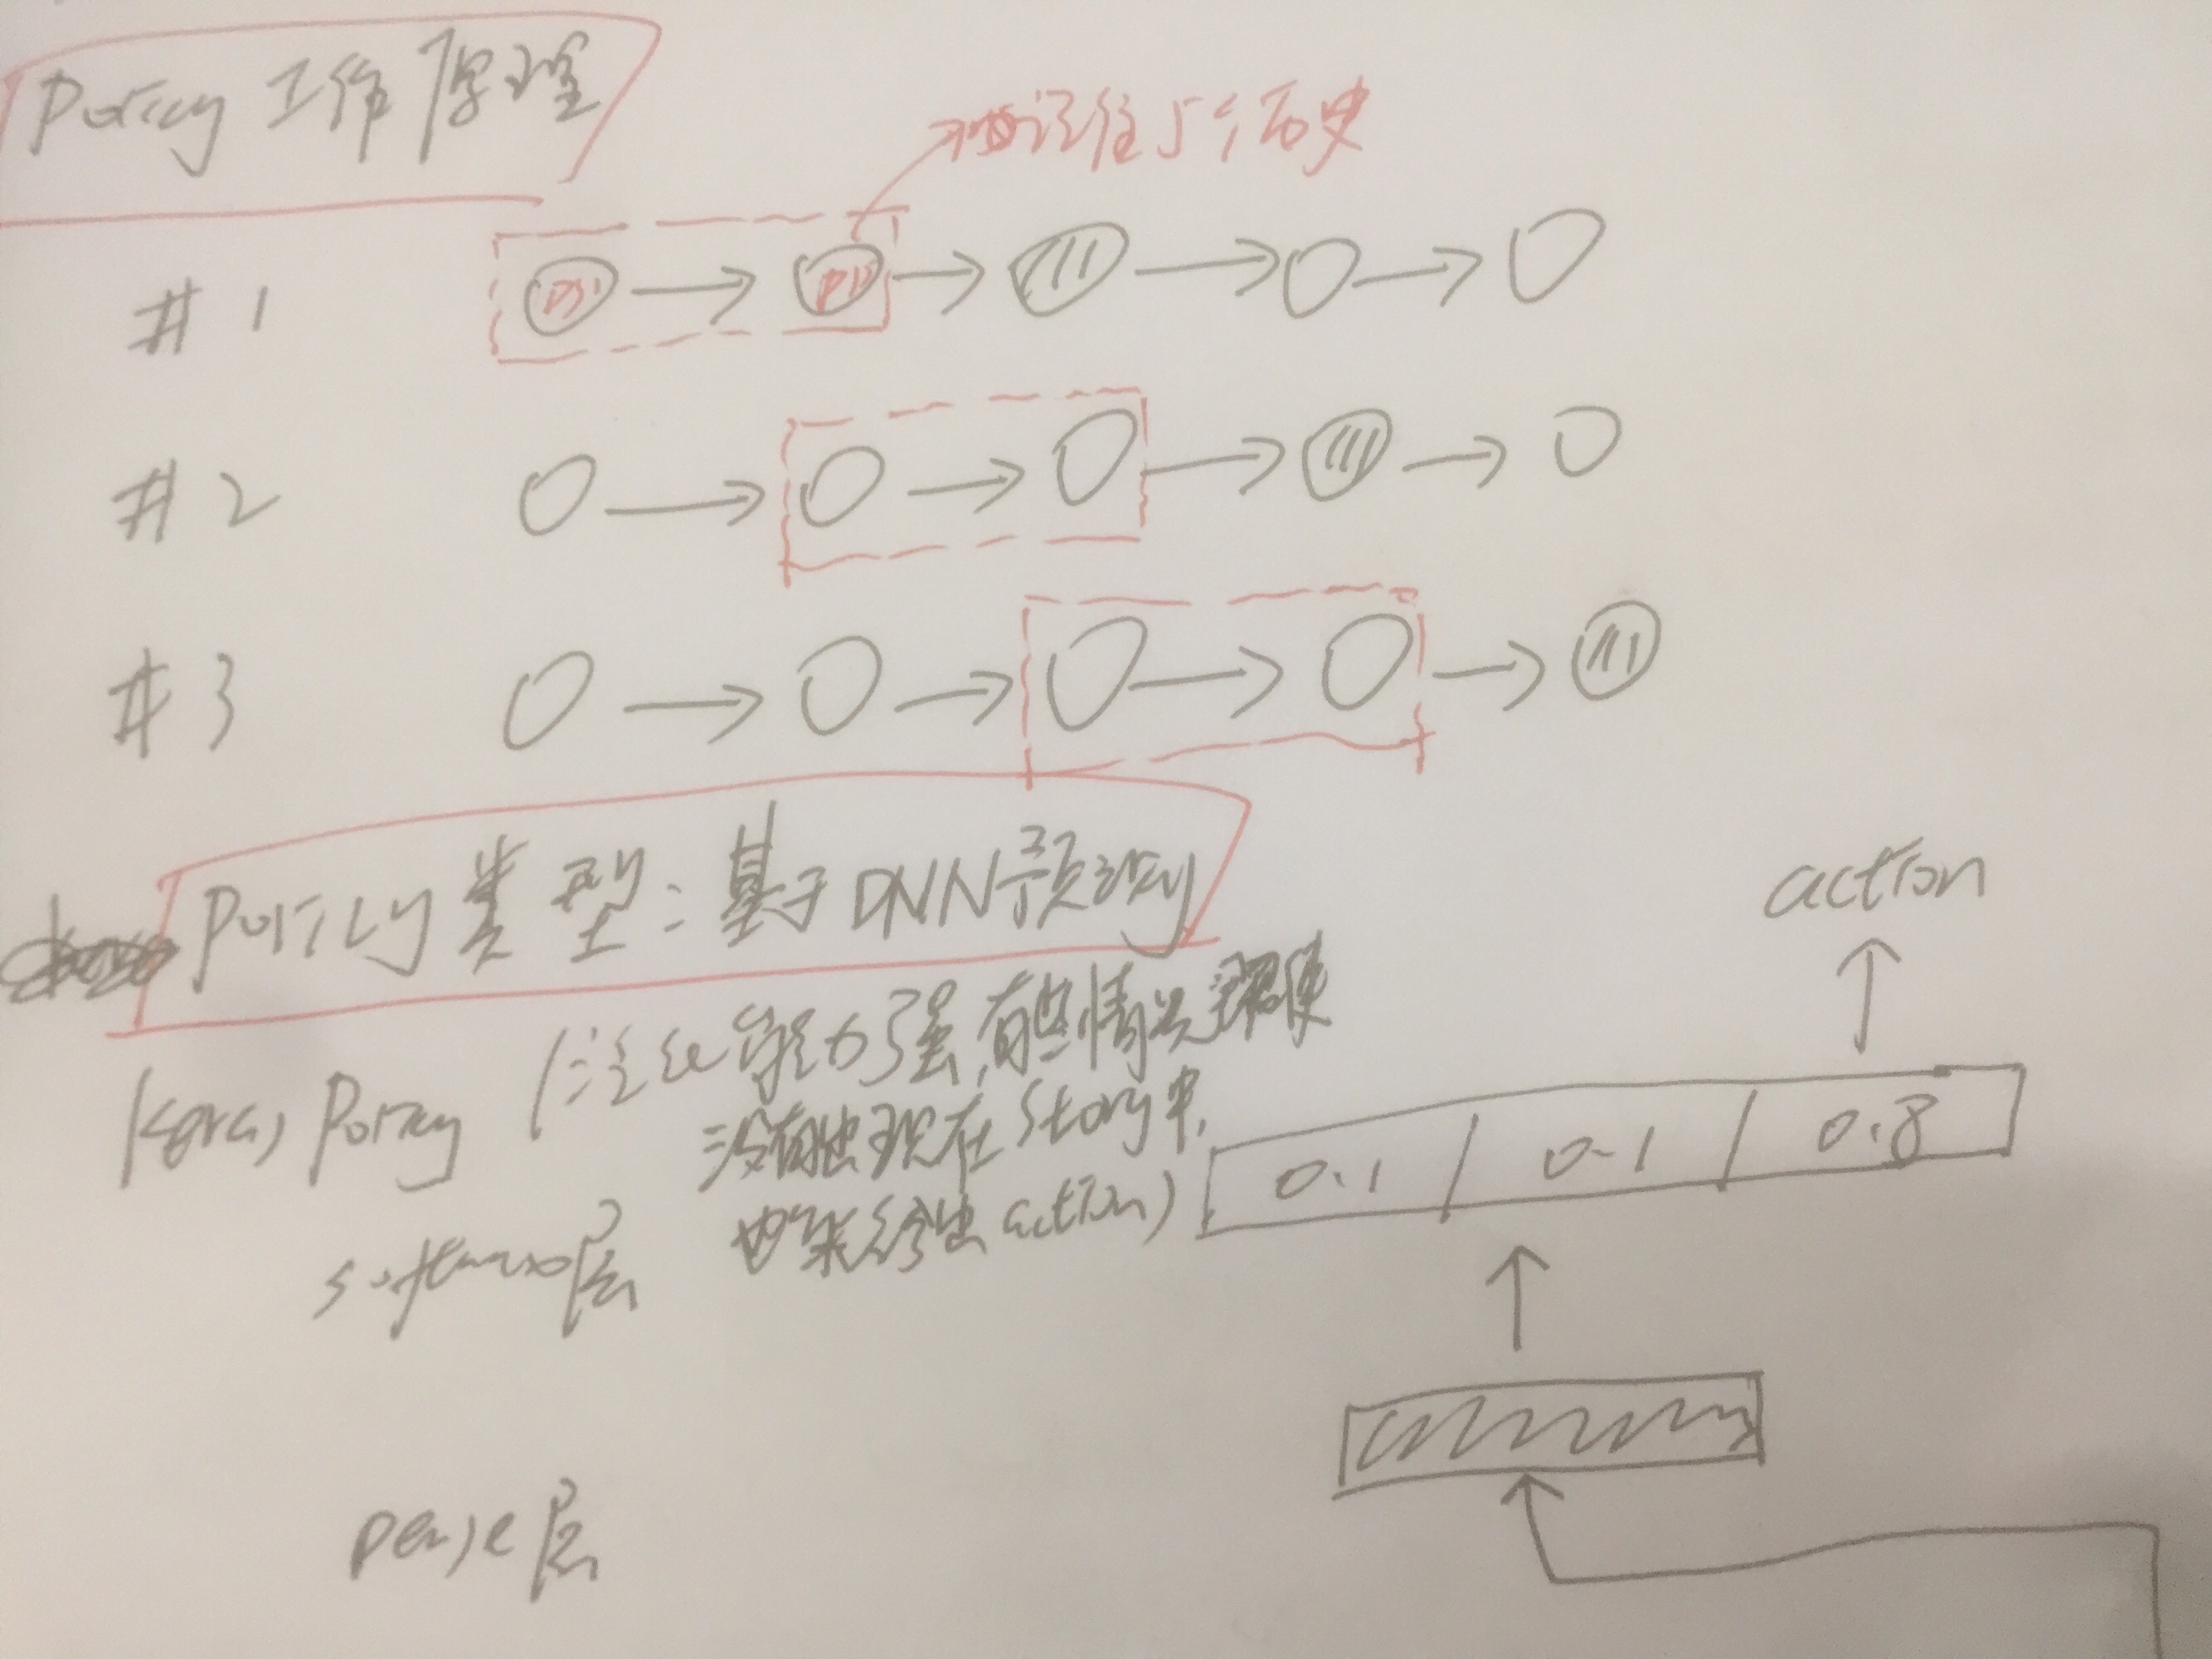 Policy 工作原理
记住5个历史
#1
#2
#3
Policy类型:基于DNN预测
action
Keras Policy (泛化能力强,有些情况即使
没有出现在story中,
也能给出action)
0.1 0.1 0.8
softmax层
Dense层